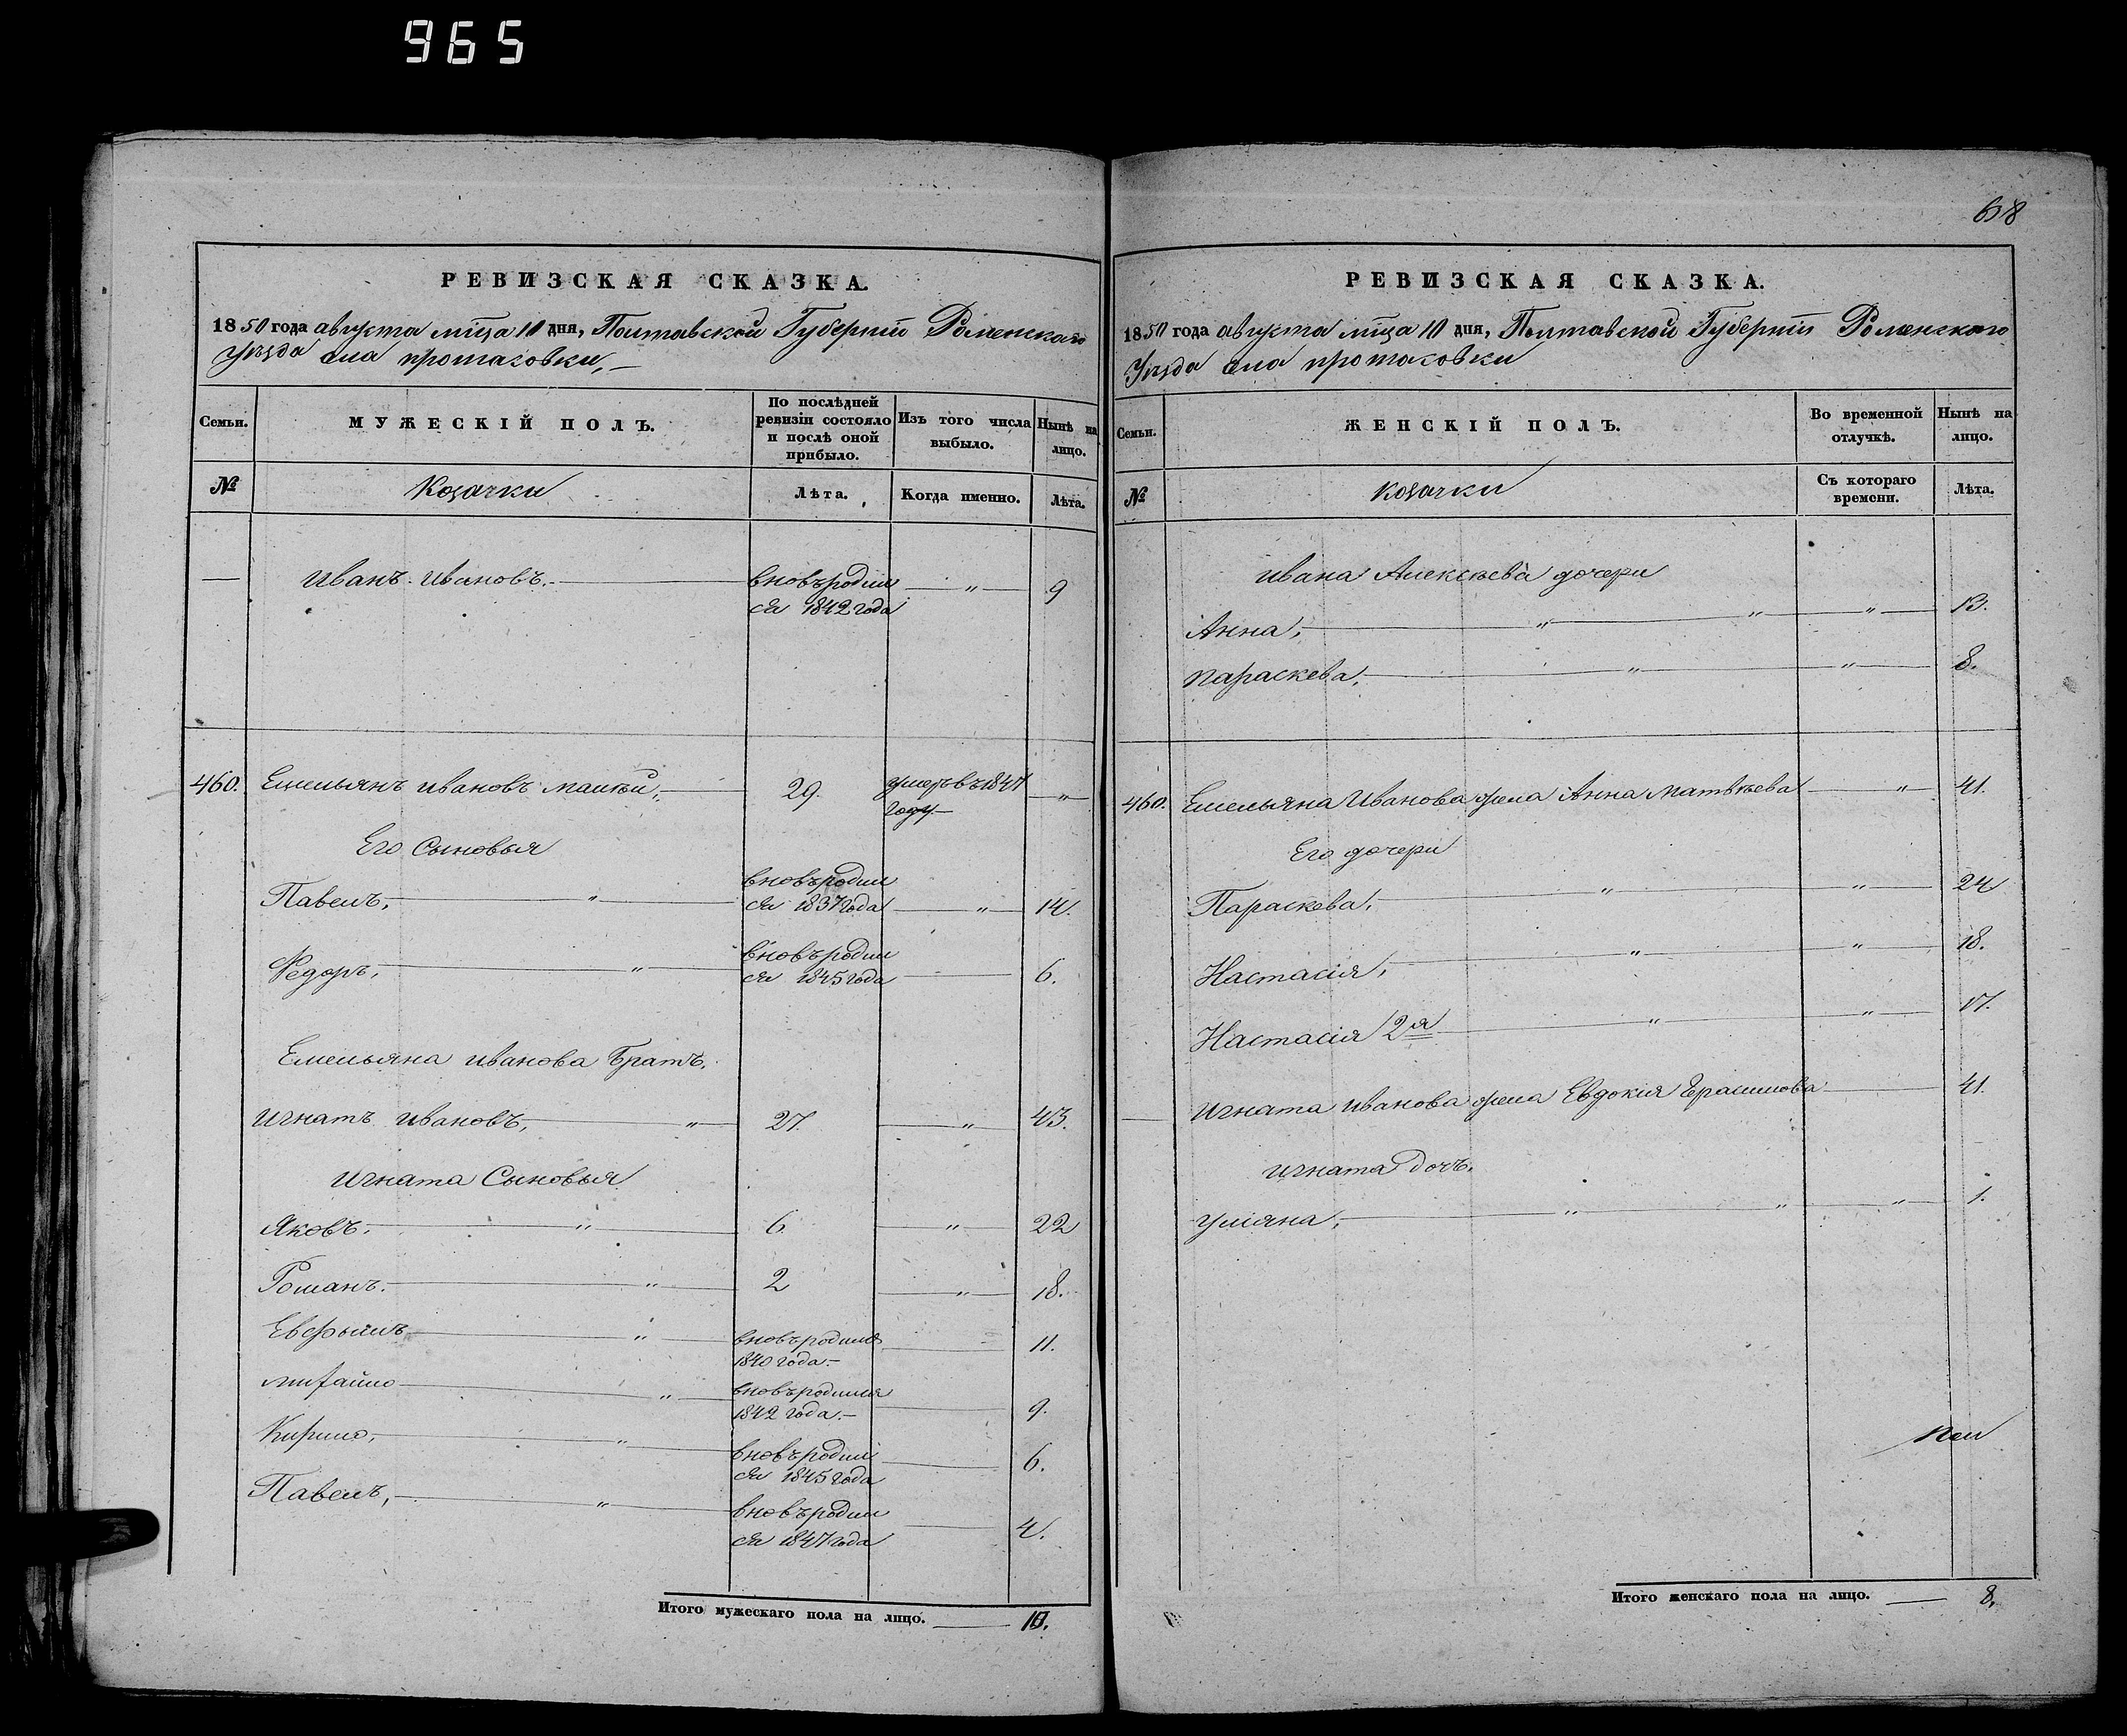 965
РЕВИЗСКАЯ СКАЗКА.
1850 года августа мца 10 дня, Полтавской Губернии Роменского
Уезда села протасовки,
Семьи. МУЖЕСКІЙ ПОЛЪ. По послѣдней ревизіи состояло и послѣ оной прибыло. Изъ того числа выбыло. Нынѣ на лицо.
№ Козачки Лѣта. Когда именно. Лѣта.
— Иванъ Ивановъ. — вновь родил „ 9
ся 1842 года
460. Емельянъ Ивановъ 29. умеръ въ 1847 „
году
Его Сыновья
Павелъ, „ вновь родил
ся 1837 года „ 14.
Федоръ, „ вновь родил
ся 1845 года 6.
Емельяна Иванова Братъ.
Игнатъ Ивановъ, „ 27. „ 43.
Игната Сыновья
Яковъ. „ 6. „ 22
Романъ. „ 2 „ 18.
„ вновь родился 11.
1840 года.
Михайло „ вновь родился 9.
1842 года.
Кирило, „ вновь родил 6.
ся 1845 года
Павелъ, „ вновь родил 4.
ся 1847 года
Итого мужескаго пола на лицо. 10.
618
РЕВИЗСКАЯ СКАЗКА.
1850 года августа мца 10 дня, Полтавской Губернии Роменского
Уезда села протасовки
Семьи. ЖЕНСКІЙ ПОЛЪ. Во временной отлучкѣ. Нынѣ на лицо.
№ Козачки Съ котораго времени. Лѣта.
Ивана Алексѣева дочери
Анна, „ „ „ 13.
Параскева, „ „ 8.
460. Емельяна Иванова жена Анна Матвѣева „ 41.
Его дочери
Параскева, „ „ 24
Настасія, „ „ 18.
Настасія 2я „ „ 17.
— Игната Иванова жена Евдокия Герасимова 41.
Игната дочь.
Уліяна, „ „ „ 1.
Итого женскаго пола на лицо. 8.